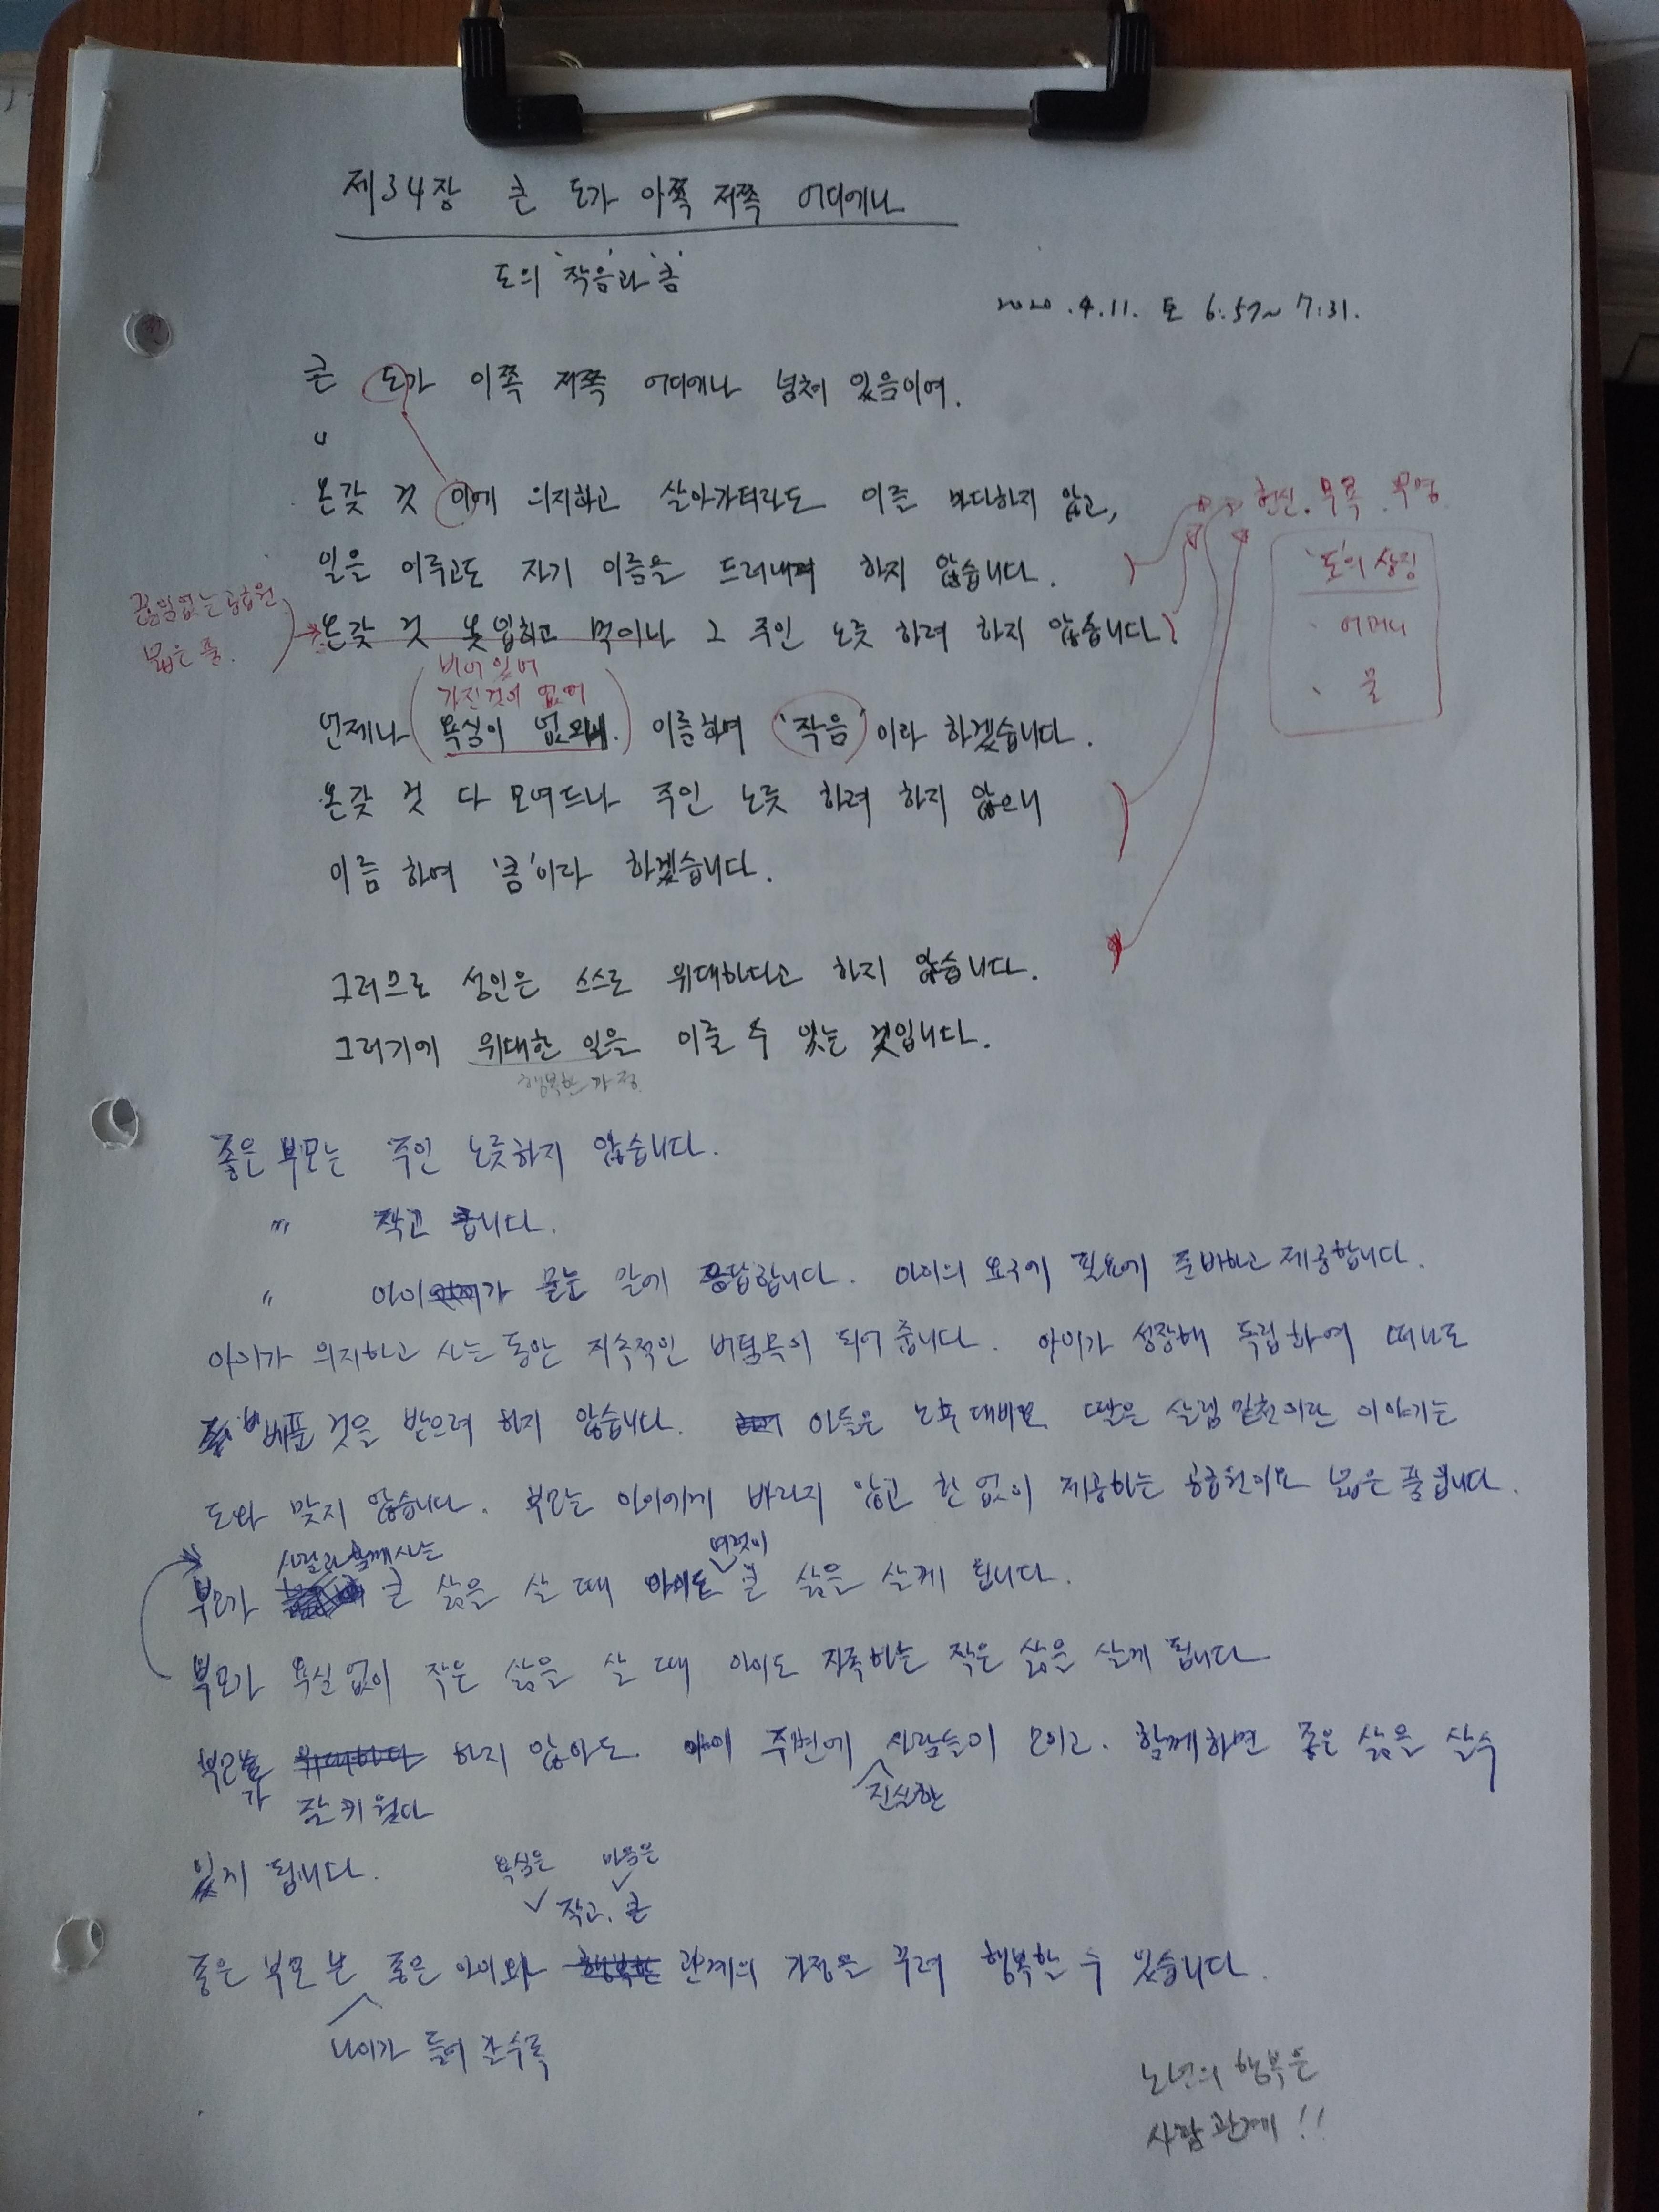 제34장 큰 도가 이쪽 저쪽 어디에나
도의 '작음'과 '큼'
2020.4.11. 토 6:57~7:31.
큰 도가 이쪽 저쪽 어디에나 넘쳐 있음이여.
온갖 것 이에 의지하고 살아가더라도 이를 마다하지 않고,
헌신. 무욕. 무명
일을 이루고도 자기 이름을 드러내려 하지 않습니다.
'도'의 상징
어머니
물
끊임없는 공급원
넓은 품.
온갖 것 옷 입히고 먹이나 그 주인 노릇 하려 하지 않습니다.
비어 있어
가진것이 없어
언제나 욕심이 없으니. 이름하여 '작음'이라 하겠습니다.
온갖 것 다 모여드나 주인 노릇 하려 하지 않으니
이름 하여 '큼'이라 하겠습니다.
그러므로 성인은 스스로 위대하다고 하지 않습니다.
그러기에 위대한 일을 이룰 수 있는 것입니다.
행복한 가정.
좋은 부모는 주인 노릇하지 않습니다.
〃 작고 큽니다.
〃 아이가 묻는 말에 응답합니다. 아이의 요구에 필요에 준비하고 제공합니다.
아이가 의지하고 사는 동안 지속적인 버팀목이 되어 줍니다. 아이가 성장해 독립하여 떠나도
베푼 것을 받으려 하지 않습니다. 아들은 노후 대비요 딸은 살림 밑천이란 이야기는
도와 맞지 않습니다. 부모는 아이에게 바라지 않고 한 없이 제공하는 공급원이요 넓은 품입니다.
사람과 함께 사는 떳떳이
부모가 큰 삶을 살 때 아이도 큰 삶을 살게 됩니다.
부모가 욕심 없이 작은 삶을 살 때 아이도 자족하는 작은 삶을 살게 됩니다
부모가 하지 않아도. 주변에 사람들이 모이고. 함께하면 좋은 삶을 살수
잘 키웠다 진실한
있게 됩니다.
욕심은 마음은
작고, 큰
좋은 부모는 좋은 아이와 관계의 가정을 꾸려 행복할 수 있습니다.
나이가 들어 갈수록
노년의 행복은
사람 관계!!